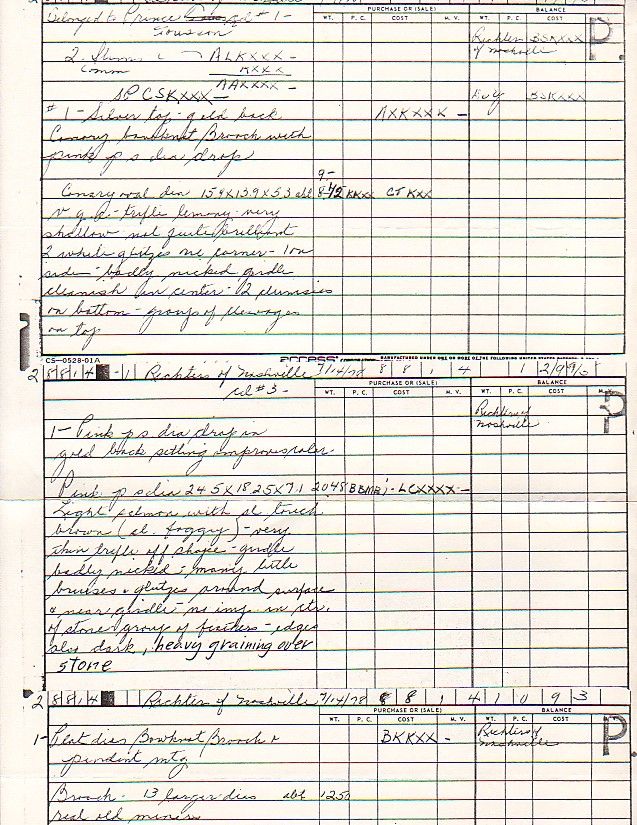 PURCHASE OR (SALE) BALANCE
Belonged to Prince # 1 -
WT. P. C. COST M. V. WT. P.C. COST
Richters BSKXXX
of Nashville P.
2. ALKXXX -
Comm KXXX -
AAKXXX -
SP CSKXXX - BSKXXX
# 1 - Silver top - gold back AXKXXX -
Canary bowknot Brooch with
pink p s dia drop
9-
Canary oval dia 15.9 X 13.9 X 5.3 abt 8 1/2 KKXX CT KXX
v g c - trifle lemony - very
shallow not quite brilliant
2 while glitzes one corner - 1 on
side - badly nicked girdle
cleanish in center - 2
on bottom - group of cleavages
on top
CS-0528-01A access MANUFACTURED UNDER ONE OR MORE OF THE FOLLOWING UNITED STATES
2 8 8 1 4 - 1 Richters of Nashville 7/14/78 8 8 1 4 1
PURCHASE OR (SALE) BALANCE
#3 - WT. P. C. COST M. V. WT. P.C. COST
Richters of
Nashville P
1 - Pink p s dia drop in
gold back setting improves color
Pink p s dia 24.5 X 18.25 X 7.1 2048 LCXXXX -
Light salmon with sl touch
brown (sl. foggy) - very
thin trifle off shape - girdle
badly nicked - many little
bruises & glitzes around surface
& near girdle - no imp. in ctr.
of stone - group of feathers - edges
also dark, heavy graining over
stone
2 8 8 1 4 Richters of Nashville 7/14/78 8 8 1 4 1 0 9 3
PURCHASE OR (SALE) BALANCE
WT. P. C. COST M. V. WT. P.C. COST
1 - Plat dias Bowknot Brooch & BKKXX - Richters of
pendant mtg Nashville P.
Brooch - 13 larger dias abt 1250
real old miners